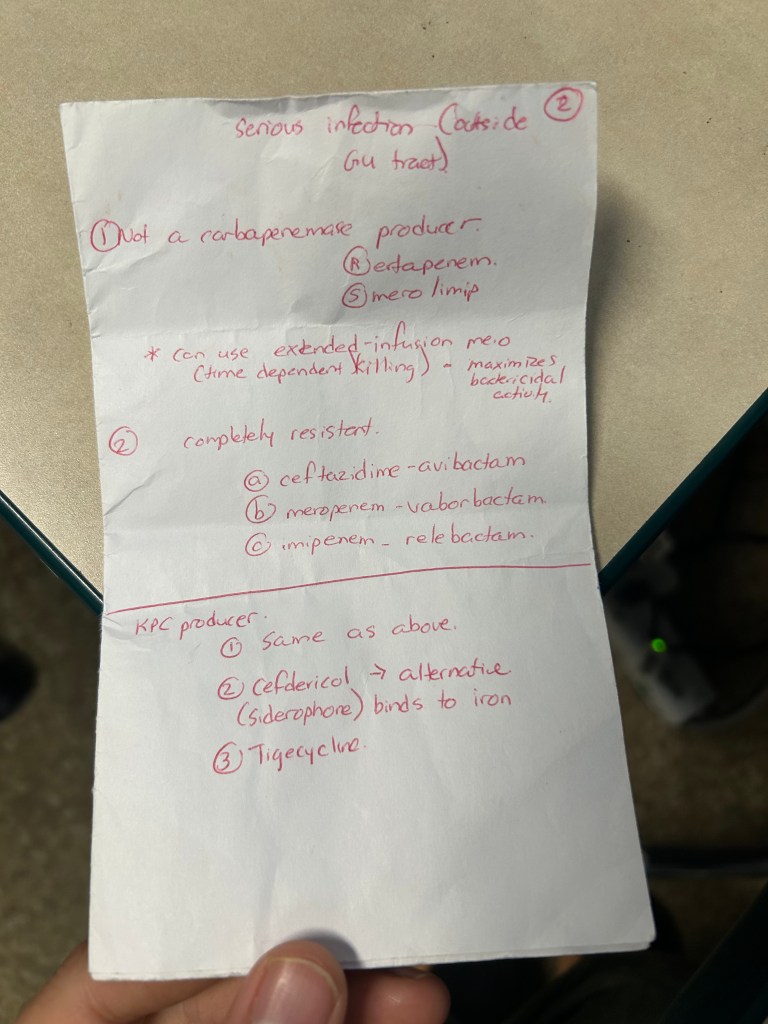 ②
Serious infection (outside
GU tract)
① Not a carbapenemase producer.
Ⓡ ertapenem.
Ⓢ mero/imip
* Can use extended-infusion mero
(time dependent killing) - maximizes
bactericidal
activity.
② completely resistant.
ⓐ ceftazidime-avibactam
ⓑ meropenem-vaborbactam
ⓒ imipenem - relebactam.
KPC producer.
① Same as above.
② Cefdericol → alternative
(siderophore) binds to iron
③ Tigecycline.